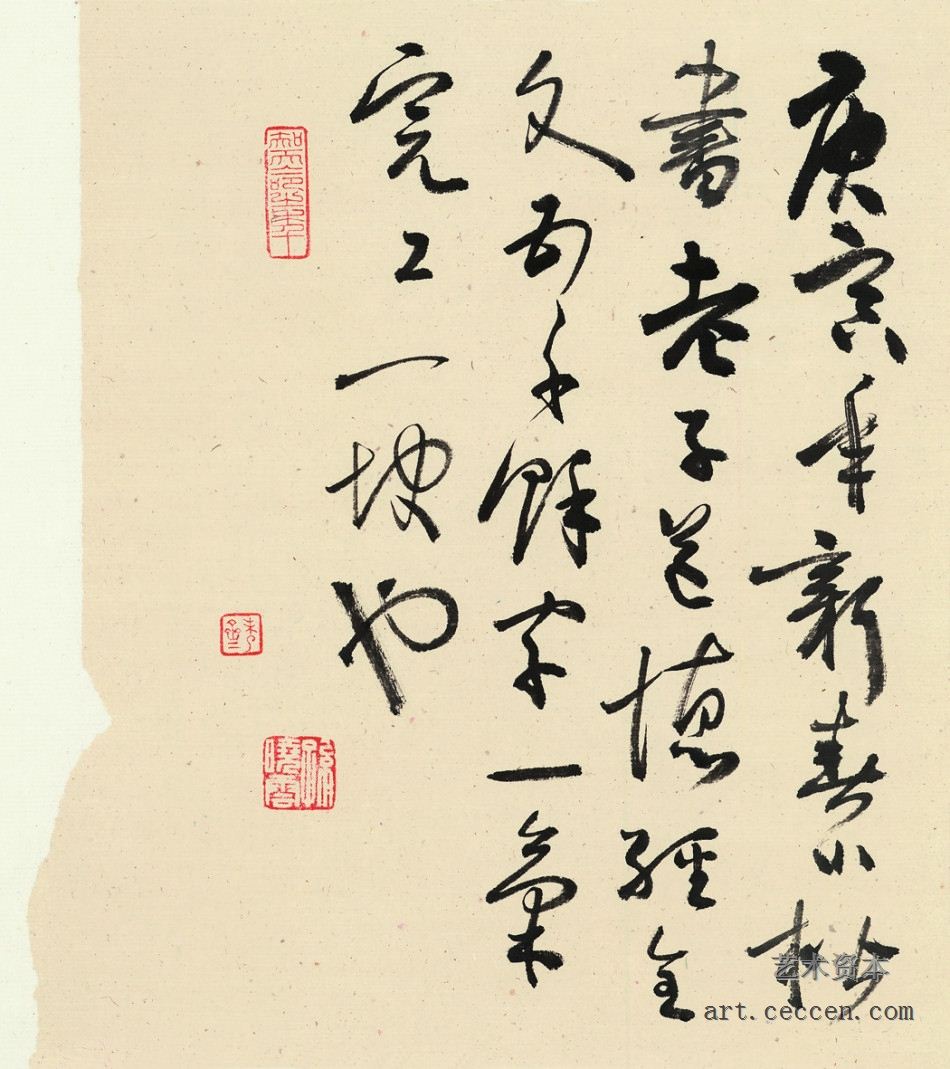 庚寅年新春小楷
書老子道德經全
文五千餘字一氣
完工一快也
孫曉雲
艺术资本
art.ceccen.com